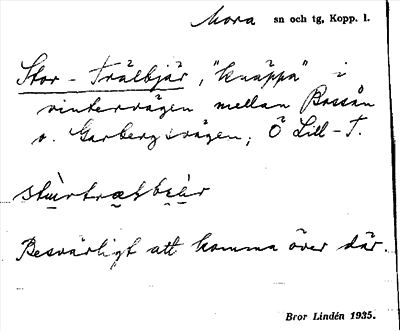 Mora sn och tg, Kopp. l.
Stor-Trälbjär, "knäppa" i
vintervägen mellan Bossån
o. Garbergsvägen; Ö Lill-T.
Besvärligt att komma över där.
Bror Lindén 1935.